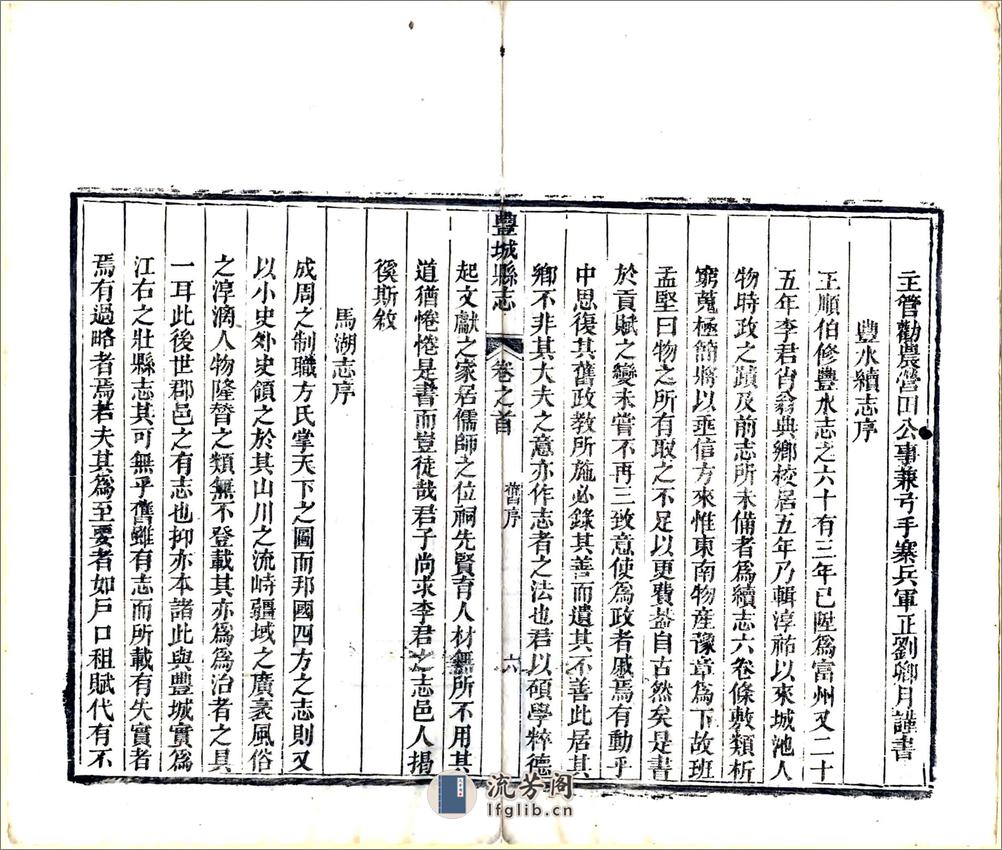 主管勸農營田公事兼弓手寨兵軍正劉卿月謹書
豐水續志序
王順伯修豐水志之六十有三年已陞爲富州又二十
五年李君肖翁典鄉校居五年乃輯淳祐以來城池人
物時政之蹟及前志所未備者爲續志六卷條敷類析
窮蒐極簡將以垂信方來惟東南物產豫章爲下故班
孟堅曰物之所有取之不足以更費葢自古然矣是書
於貢賦之變未嘗不再三致意使爲政者戚焉有動乎
中思復其舊政教所施必錄其善而遺其不善此居其
鄉不非其大夫之意亦作志者之法也君以碩學粹德
豐城縣志
卷之首
舊序
六
起文獻之家居儒師之位祠先賢育人材無所不用其
道猶惓惓是書而豈徒哉君子尚求李君之志邑人揭
徯斯敘
馬湖志序
成周之制職方氏掌天下之圖而邦國四方之志則又
以小史外史領之於其山川之流峙疆域之廣袤風俗
之淳漓人物隆替之類無不登載其亦爲爲治者之具
一耳此後世郡邑之有志也抑亦本諸此與豐城實爲
江右之壯縣志其可無乎舊雖有志而所載有失實者
焉有過略者焉若夫其爲至要者如戶口租賦代有不
流芳阁
lfglib.cn